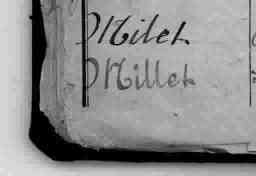 Milet
Millet